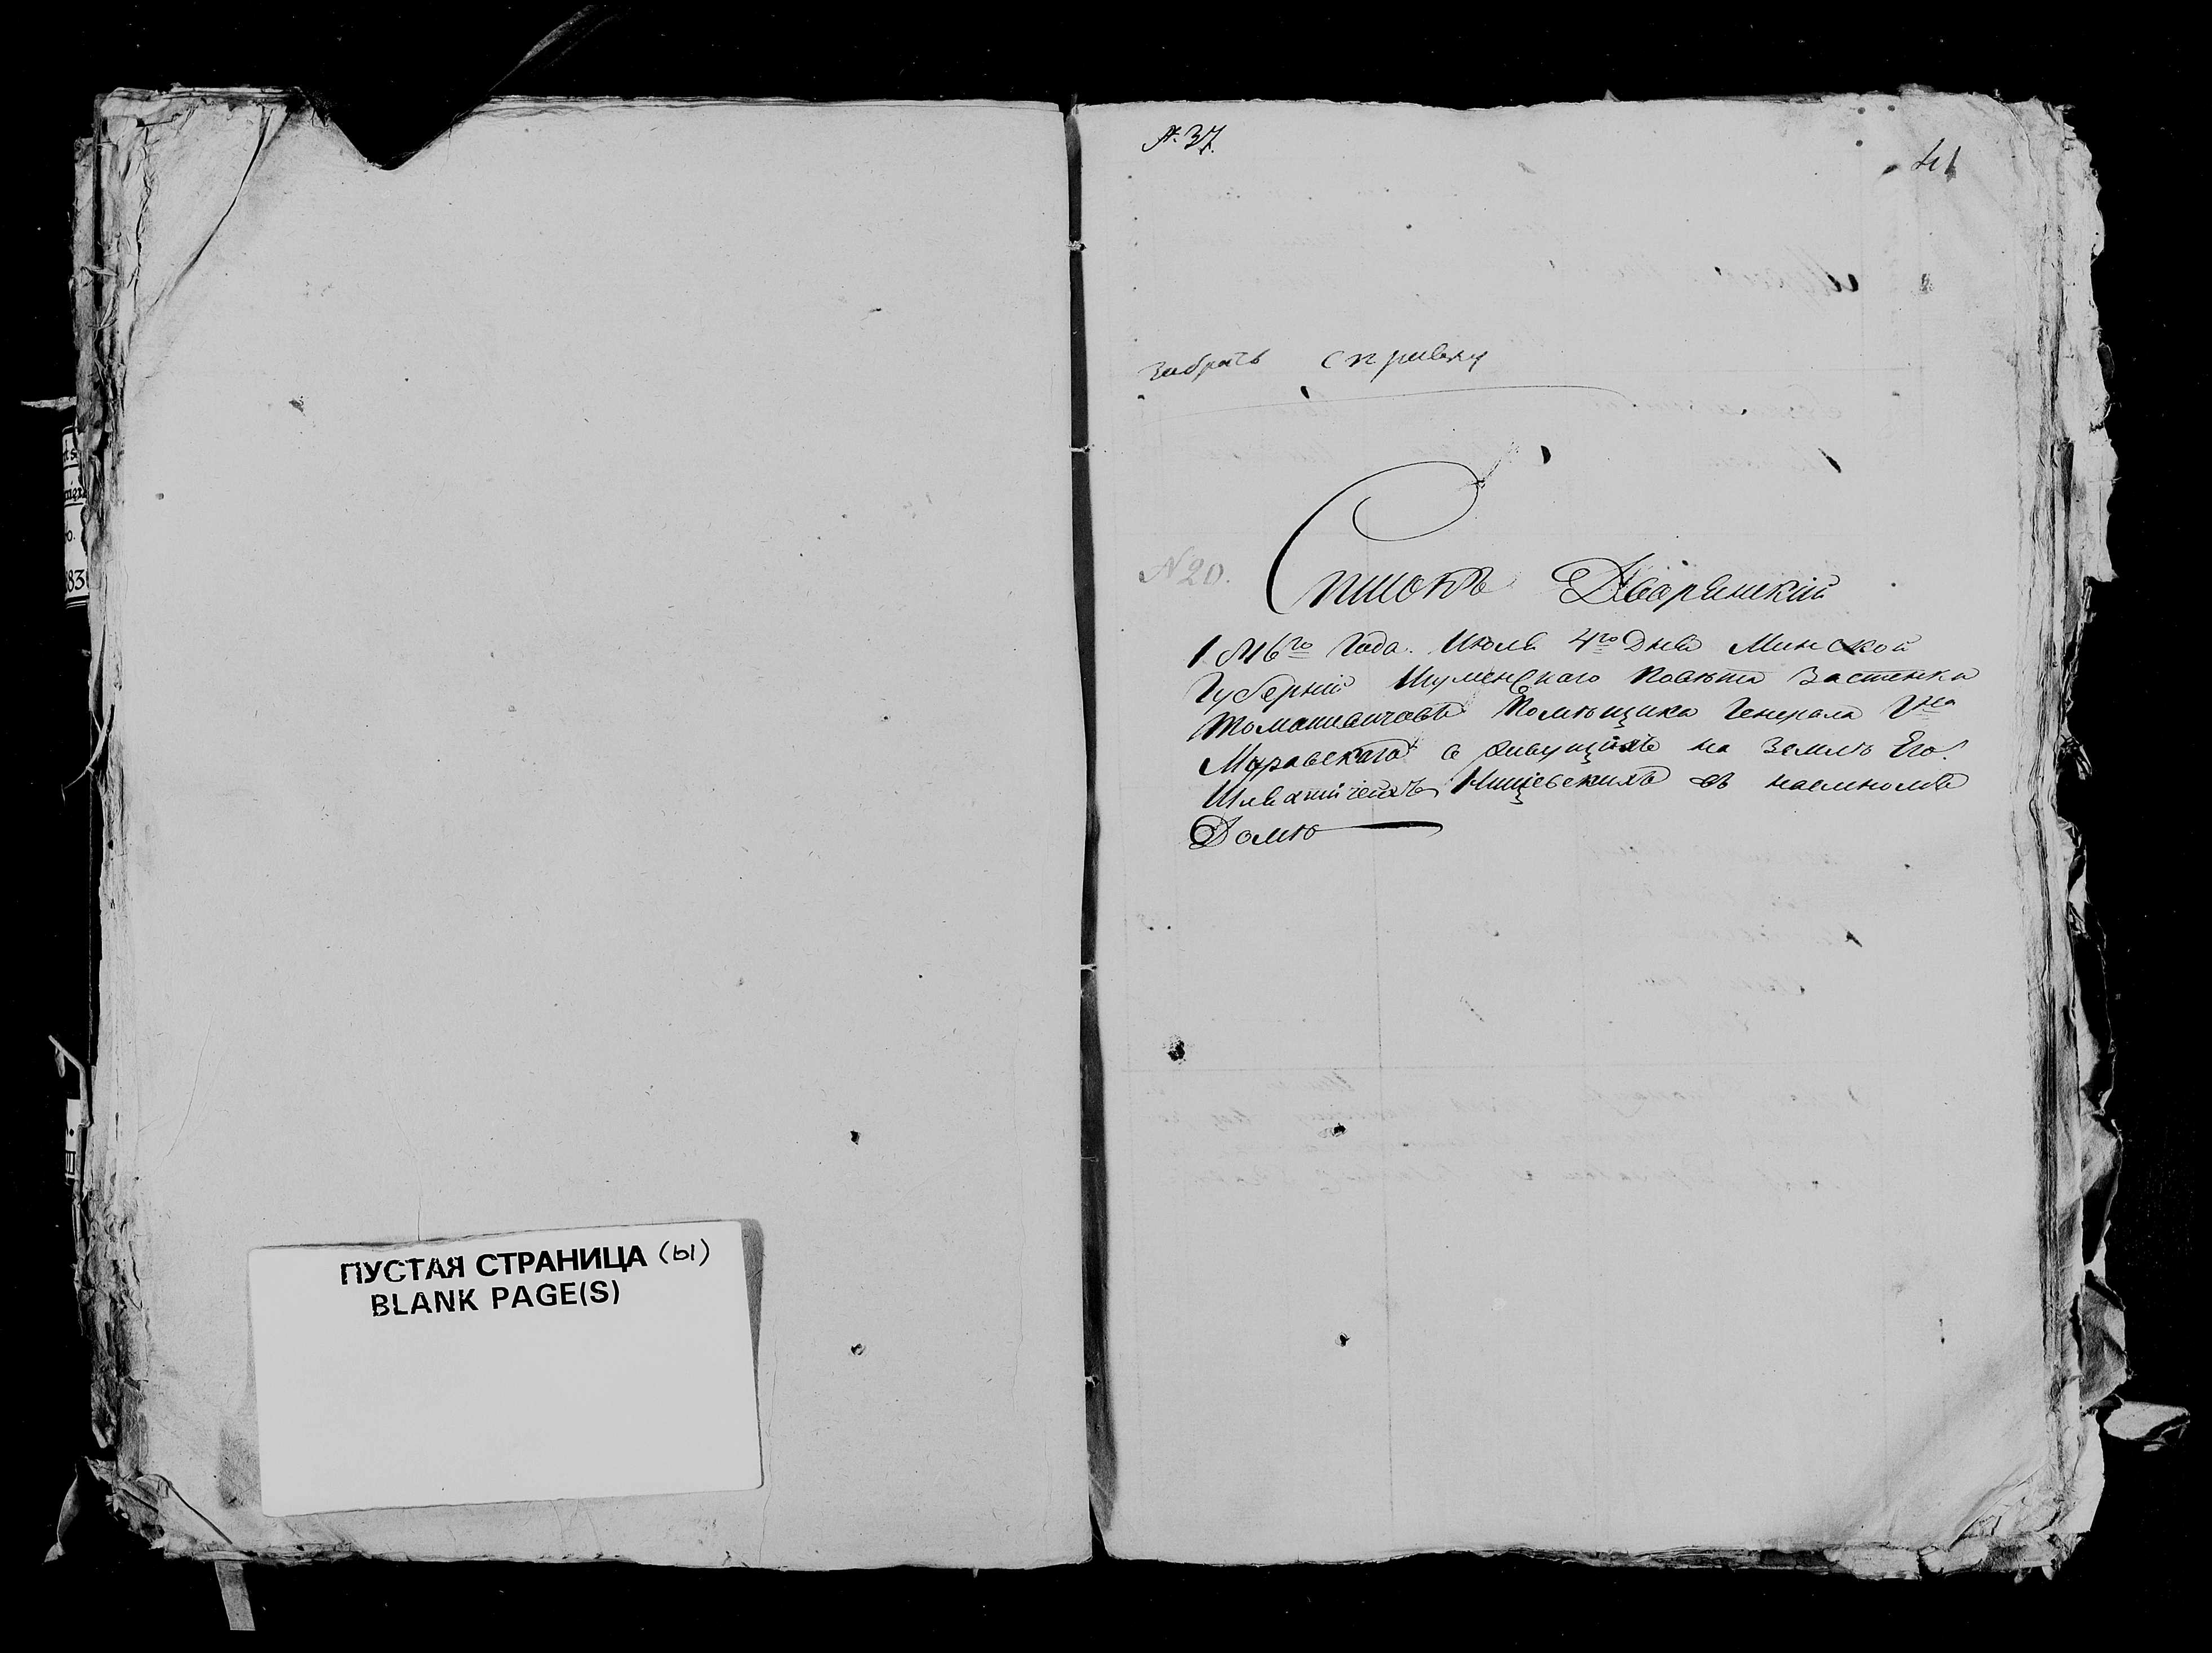 ПУСТАЯ СТРАНИЦА (ы)
BLANK PAGE(S)
№ 37.
41
забрать справку
№ 20.
Списокъ Дворянский
1816го Года. Июля 4го Дня Минской
Губернiи Игуменскаго Повѣта Застенка
Томашевичовъ Помѣщика Генерала Гна
Муравскаго о живущихъ на Землѣ Его
Шляхтичехъ Нищевскихъ въ наемномъ
Домѣ